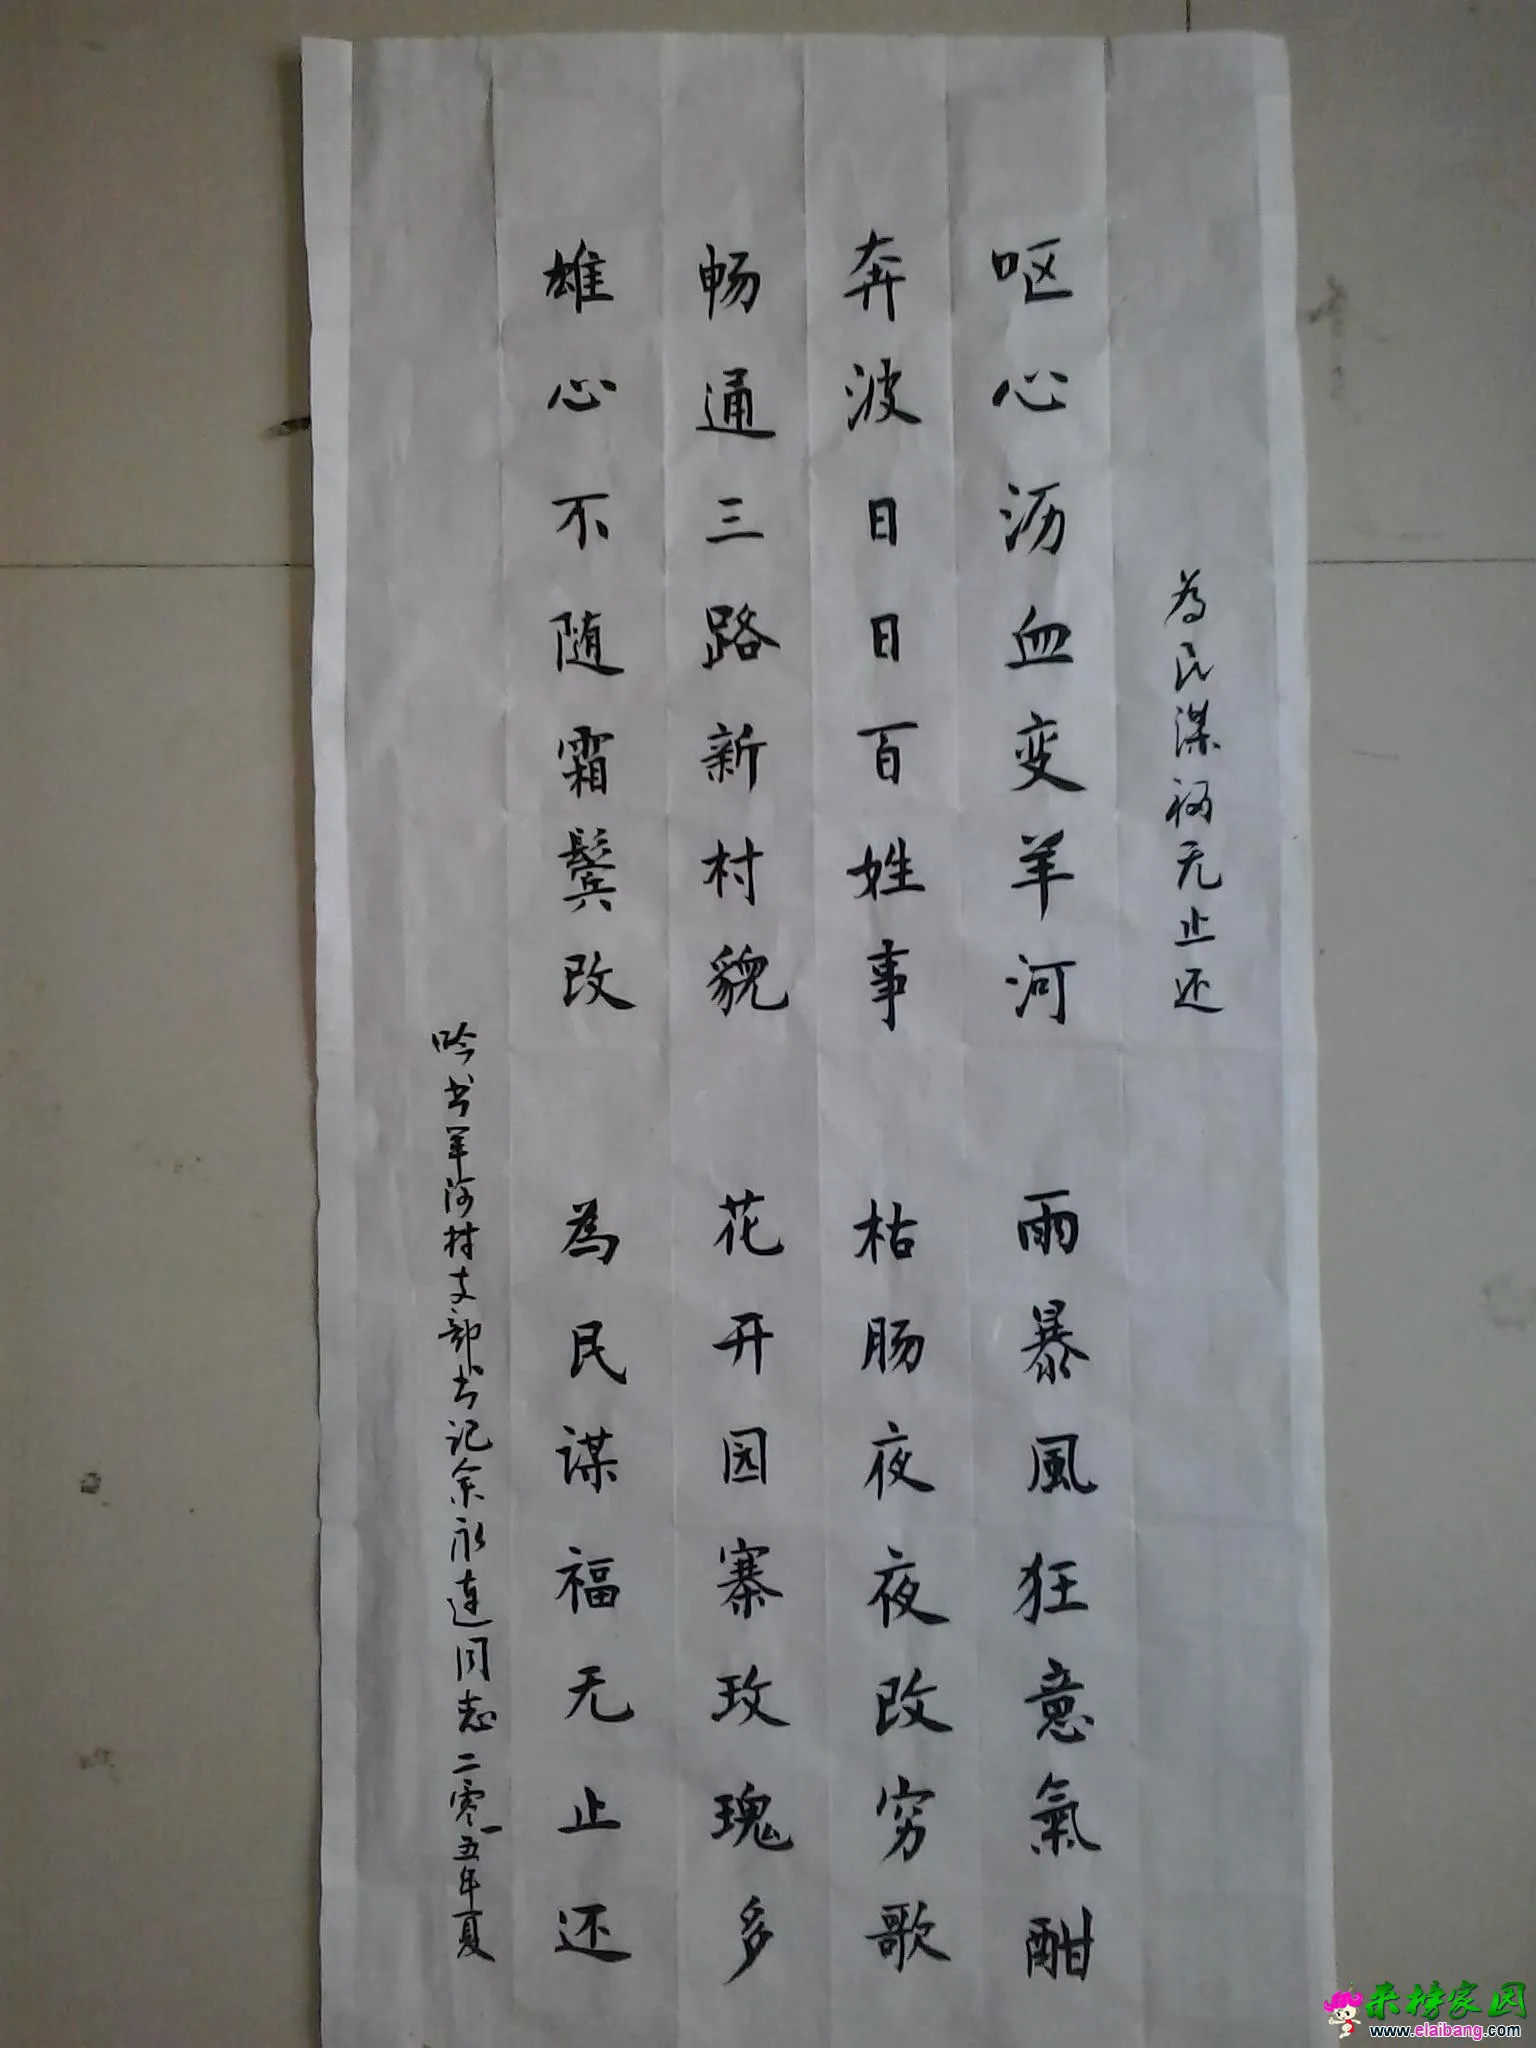 为民谋福无止还
呕心沥血变羊河 雨暴風狂意氣酣
奔波日日百姓事 枯肠夜夜改穷歌
畅通三路新村貌 花开园寨玫瑰多
雄心不随霜鬓改 為民谋福无止还
吟书羊河村支部书记余永连同志二零一五年夏
来榜家园
www.elaibang.com